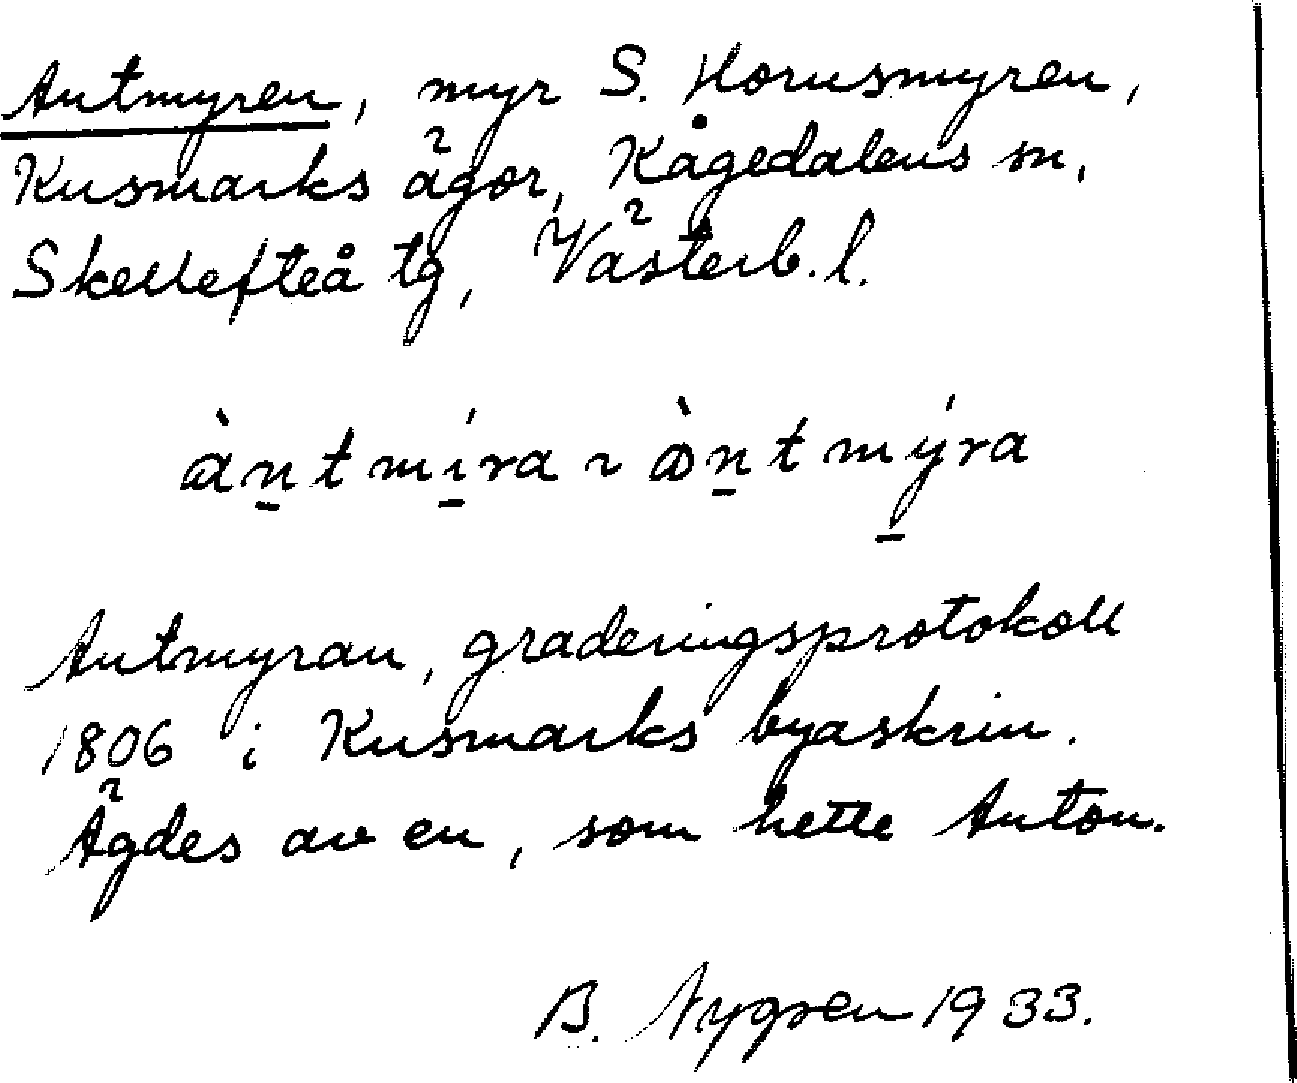 Antmyren, myr S. Hornsmyren,
Kusmarks ägor, Kågedalens sn,
Skellefteå tg, Västerb. l.
àn̠tmí̠ra ~ òn̠tmý̠ra
Antmyran, graderingsprotokoll
1806 i Kusmarks byaskrin.
Ägdes av en, som hette Anton.
B. Nygren 1933.